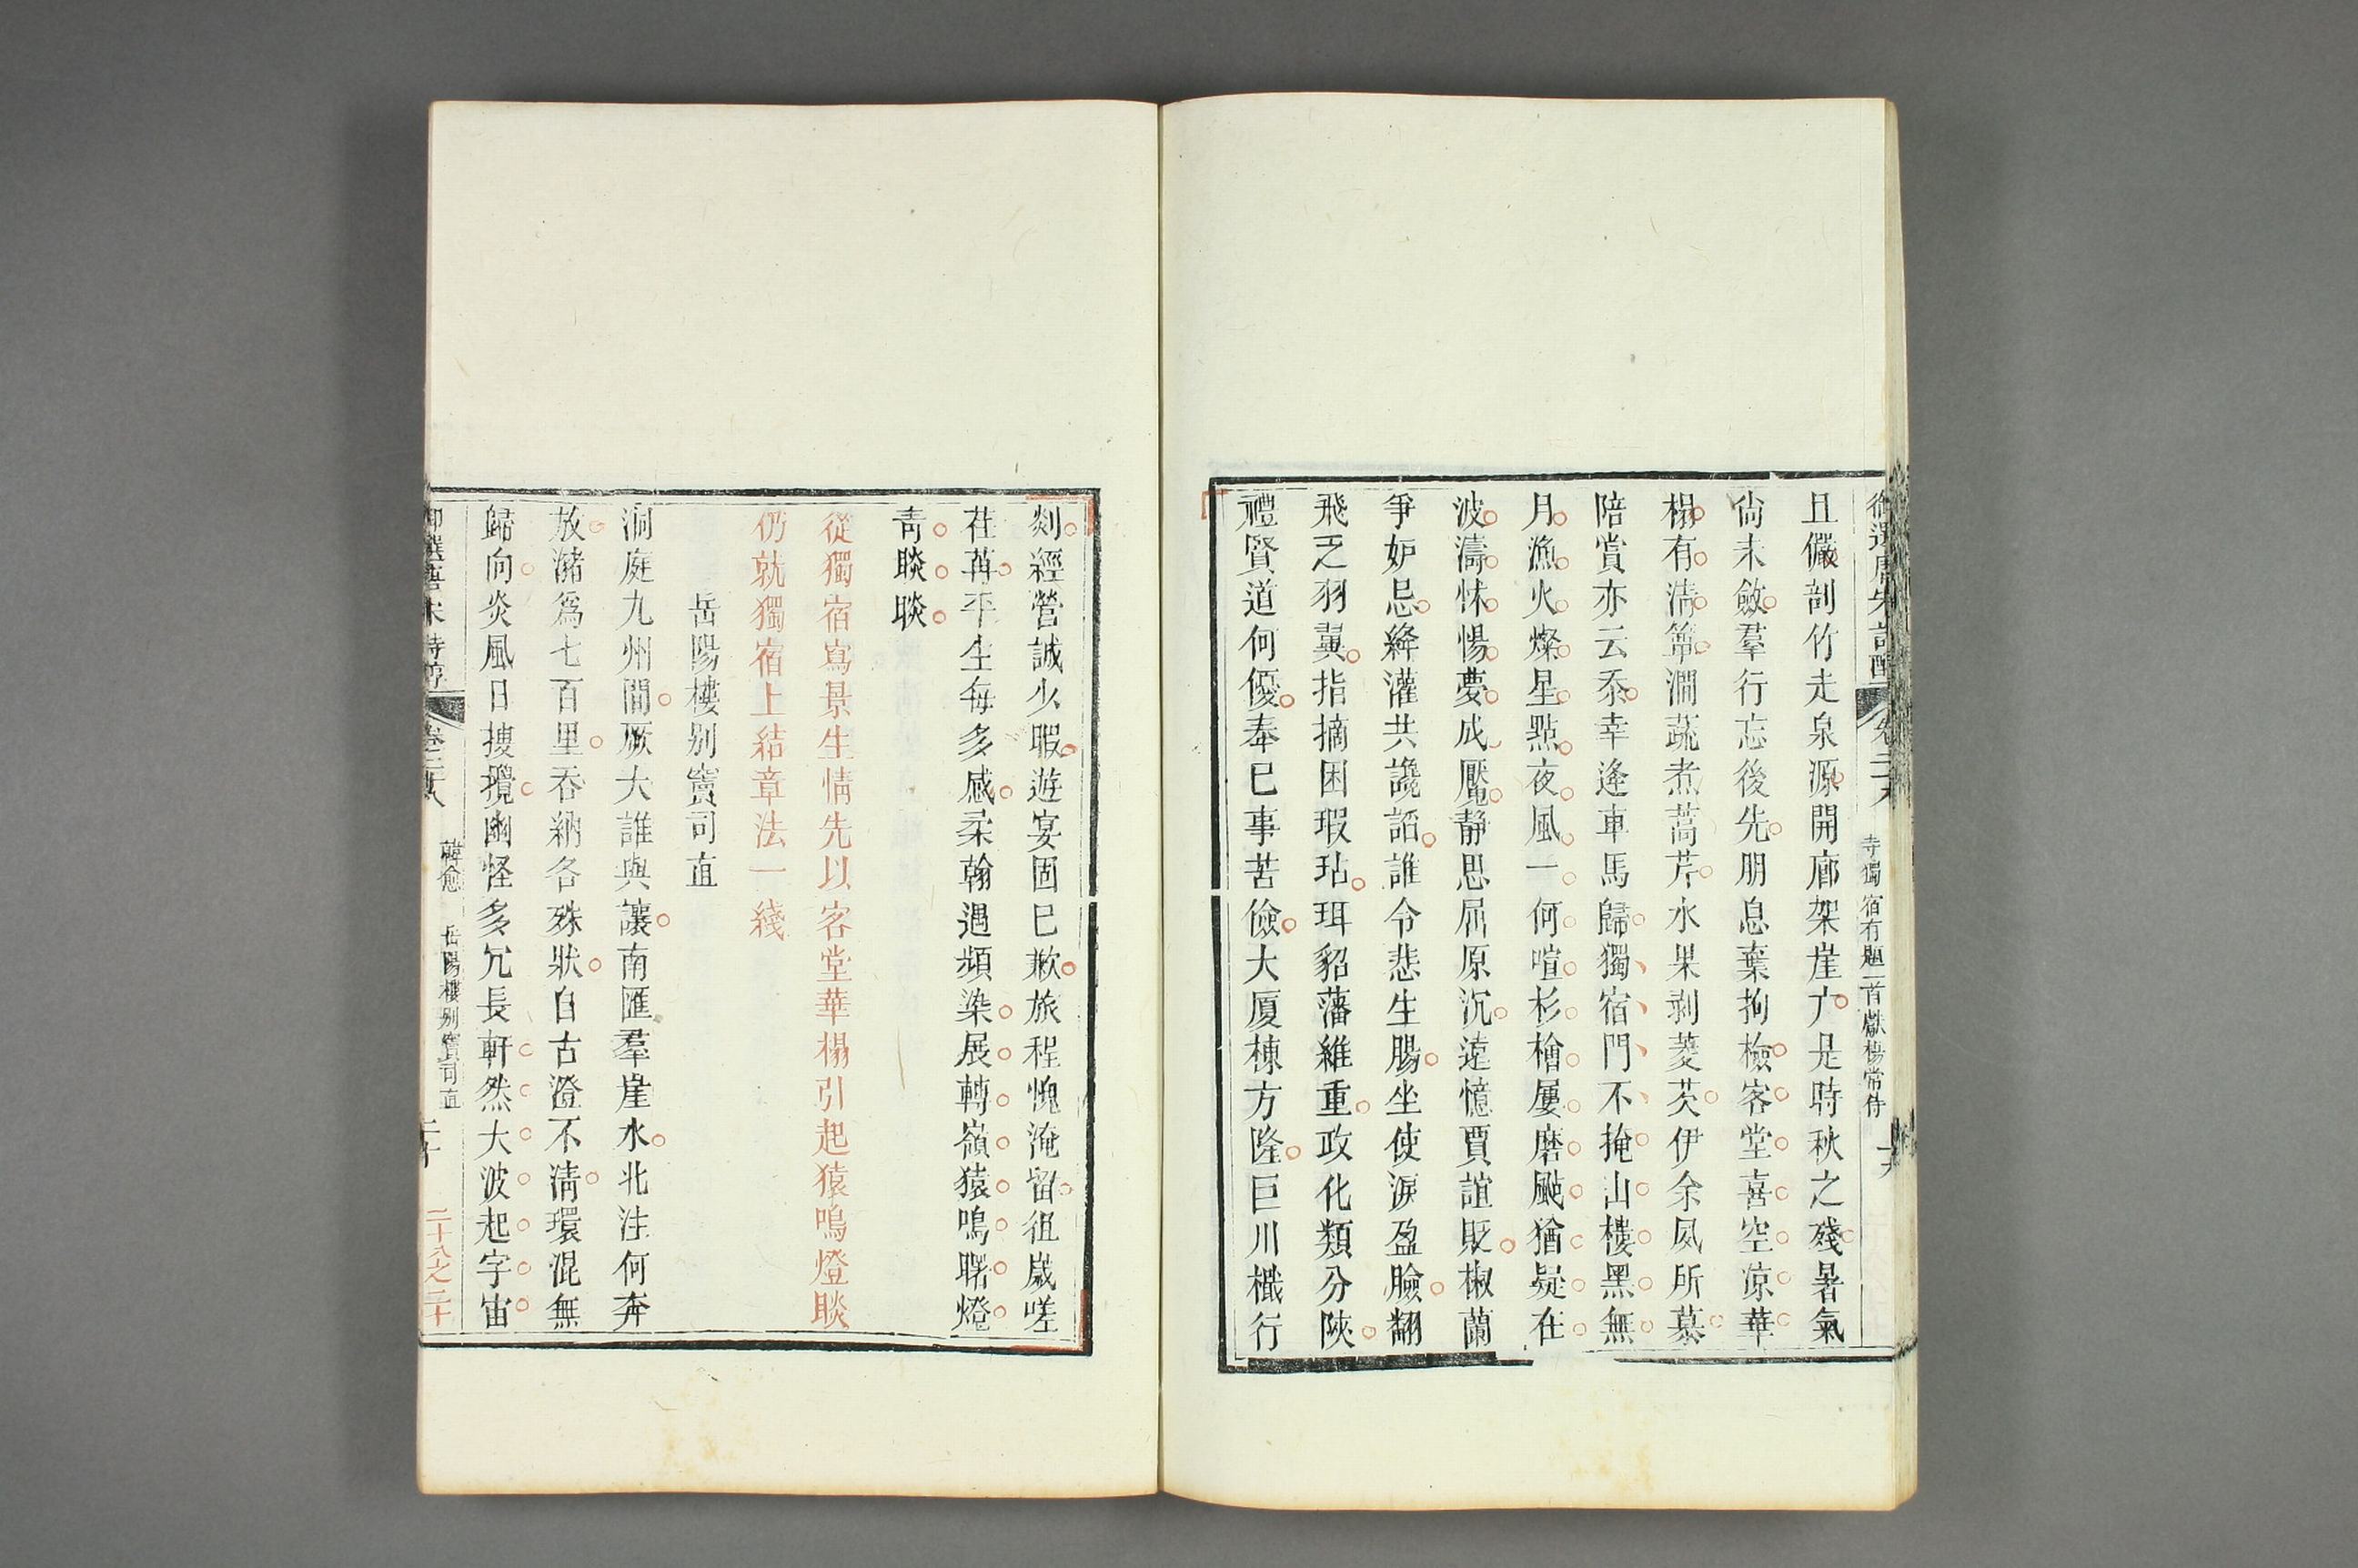 御選唐宋詩醇 卷二十八 寺獨宿有題一首獻楊常侍 十九
且儼剖竹走泉源開廊架崖广是時秋之殘暑氣
尚未斂羣行忘後先朋息棄拘檢客堂喜空涼華
榻有清簟澗蔬煮蒿芹水果剥菱芡伊余夙所慕
陪賞亦云忝幸逢車馬歸獨宿門不掩山樓黑無
月漁火燦星點夜風一何喧杉檜屢磨颭猶疑在
波濤怵惕夢成魘靜思屈原沉遠憶賈誼貶椒蘭
爭妒忌絳灌共讒諂誰令悲生腸坐使淚盈臉翻
飛乏羽翼指摘困瑕玷珥貂藩維重政化類分陝
禮賢道何優奉己事苦儉大厦棟方隆巨川檝行
剡經營誠少暇遊宴固已歉旅程愧淹留徂歲嗟
荏苒平生每多感柔翰遇頻染展轉嶺猿鳴曙燈
青睒睒
從獨宿寫景生情先以客堂華榻引起猿鳴燈睒
仍就獨宿上結章法一綫
岳陽樓别竇司直
洞庭九州間厥大誰與讓南匯羣崖水北注何奔
放瀦爲七百里吞納各殊狀自古澄不清環混無
歸向炎風日搜攪幽怪多冗長軒然大波起宇宙
御選唐宋詩醇 卷二十八 韓愈 岳陽樓别竇司直 二十
二十八之二十